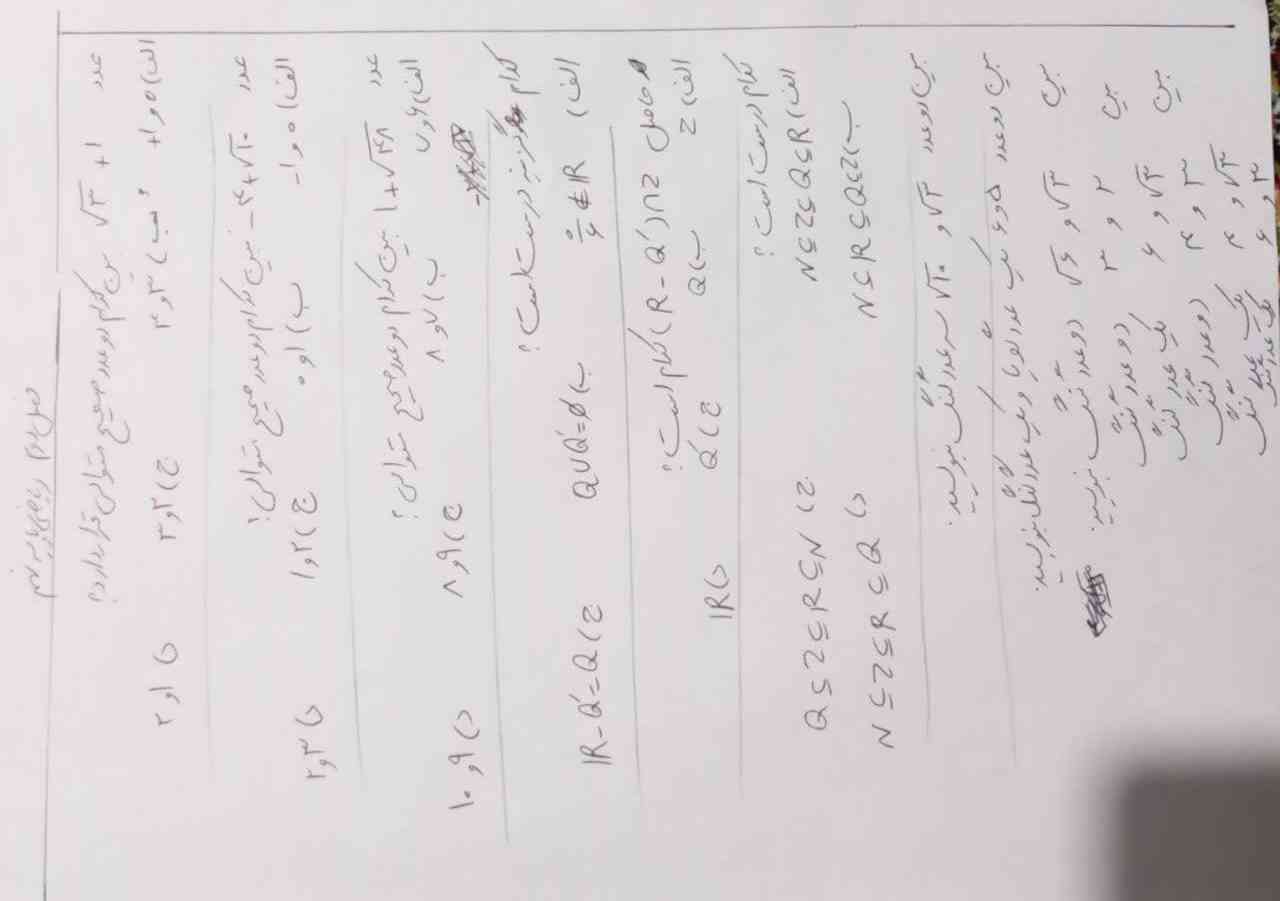 فصل دوم ریاضی پایه نهم
عدد ۱+ √۳ بین کدام دو عدد صحیح متوالی قرار دارد؟
الف) ۰ و ۱+ ب) ۳ و ۴ ج) ۲ و ۳ د) ۱ و ۲
عدد ۴+√۱۰- بین کدام دو عدد صحیح متوالی؟
الف) ۰ و ۱- ب) ۱ و ۰ ج) ۲ و ۱ د) ۳ و ۲
عدد ۱+√۴۸ بین کدام دو عدد صحیح متوالی؟
الف) ۶ و ۷ ب) ۷ و ۸ ج) ۹ و ۸ د) ۹ و ۱۰
کدام گزینه درست است؟
الف) ۰/۶ ∉ IR ب) Q∪Q′=∅ ج) IR-Q′=Q
حاصل (R-Q′)∩Z کدام است؟
الف) Z ب) Q ج) Q′ د) IR
کدام درست است؟
الف) N⊆Z⊆Q⊆R ج) Q⊆Z⊆R⊆N
ب) N⊆R⊆Q⊆Z د) N⊆Z⊆R⊆Q
بین دو عدد √۲ و √۱۰ سه عدد گنگ بنویسید.
بین دو عدد ۵ و ۶ یک عدد گویا و یک عدد گنگ بنویسید.
بین √۳ و √۶ دو عدد گنگ بنویسید.
بین ۲ و ۳ دو عدد گنگ
بین √۳ و ۶ یک عدد گنگ
۳ و ۴ دو عدد گنگ
√۳ و ۴ یک عدد گنگ
۳ و ۶ یک عدد گنگ